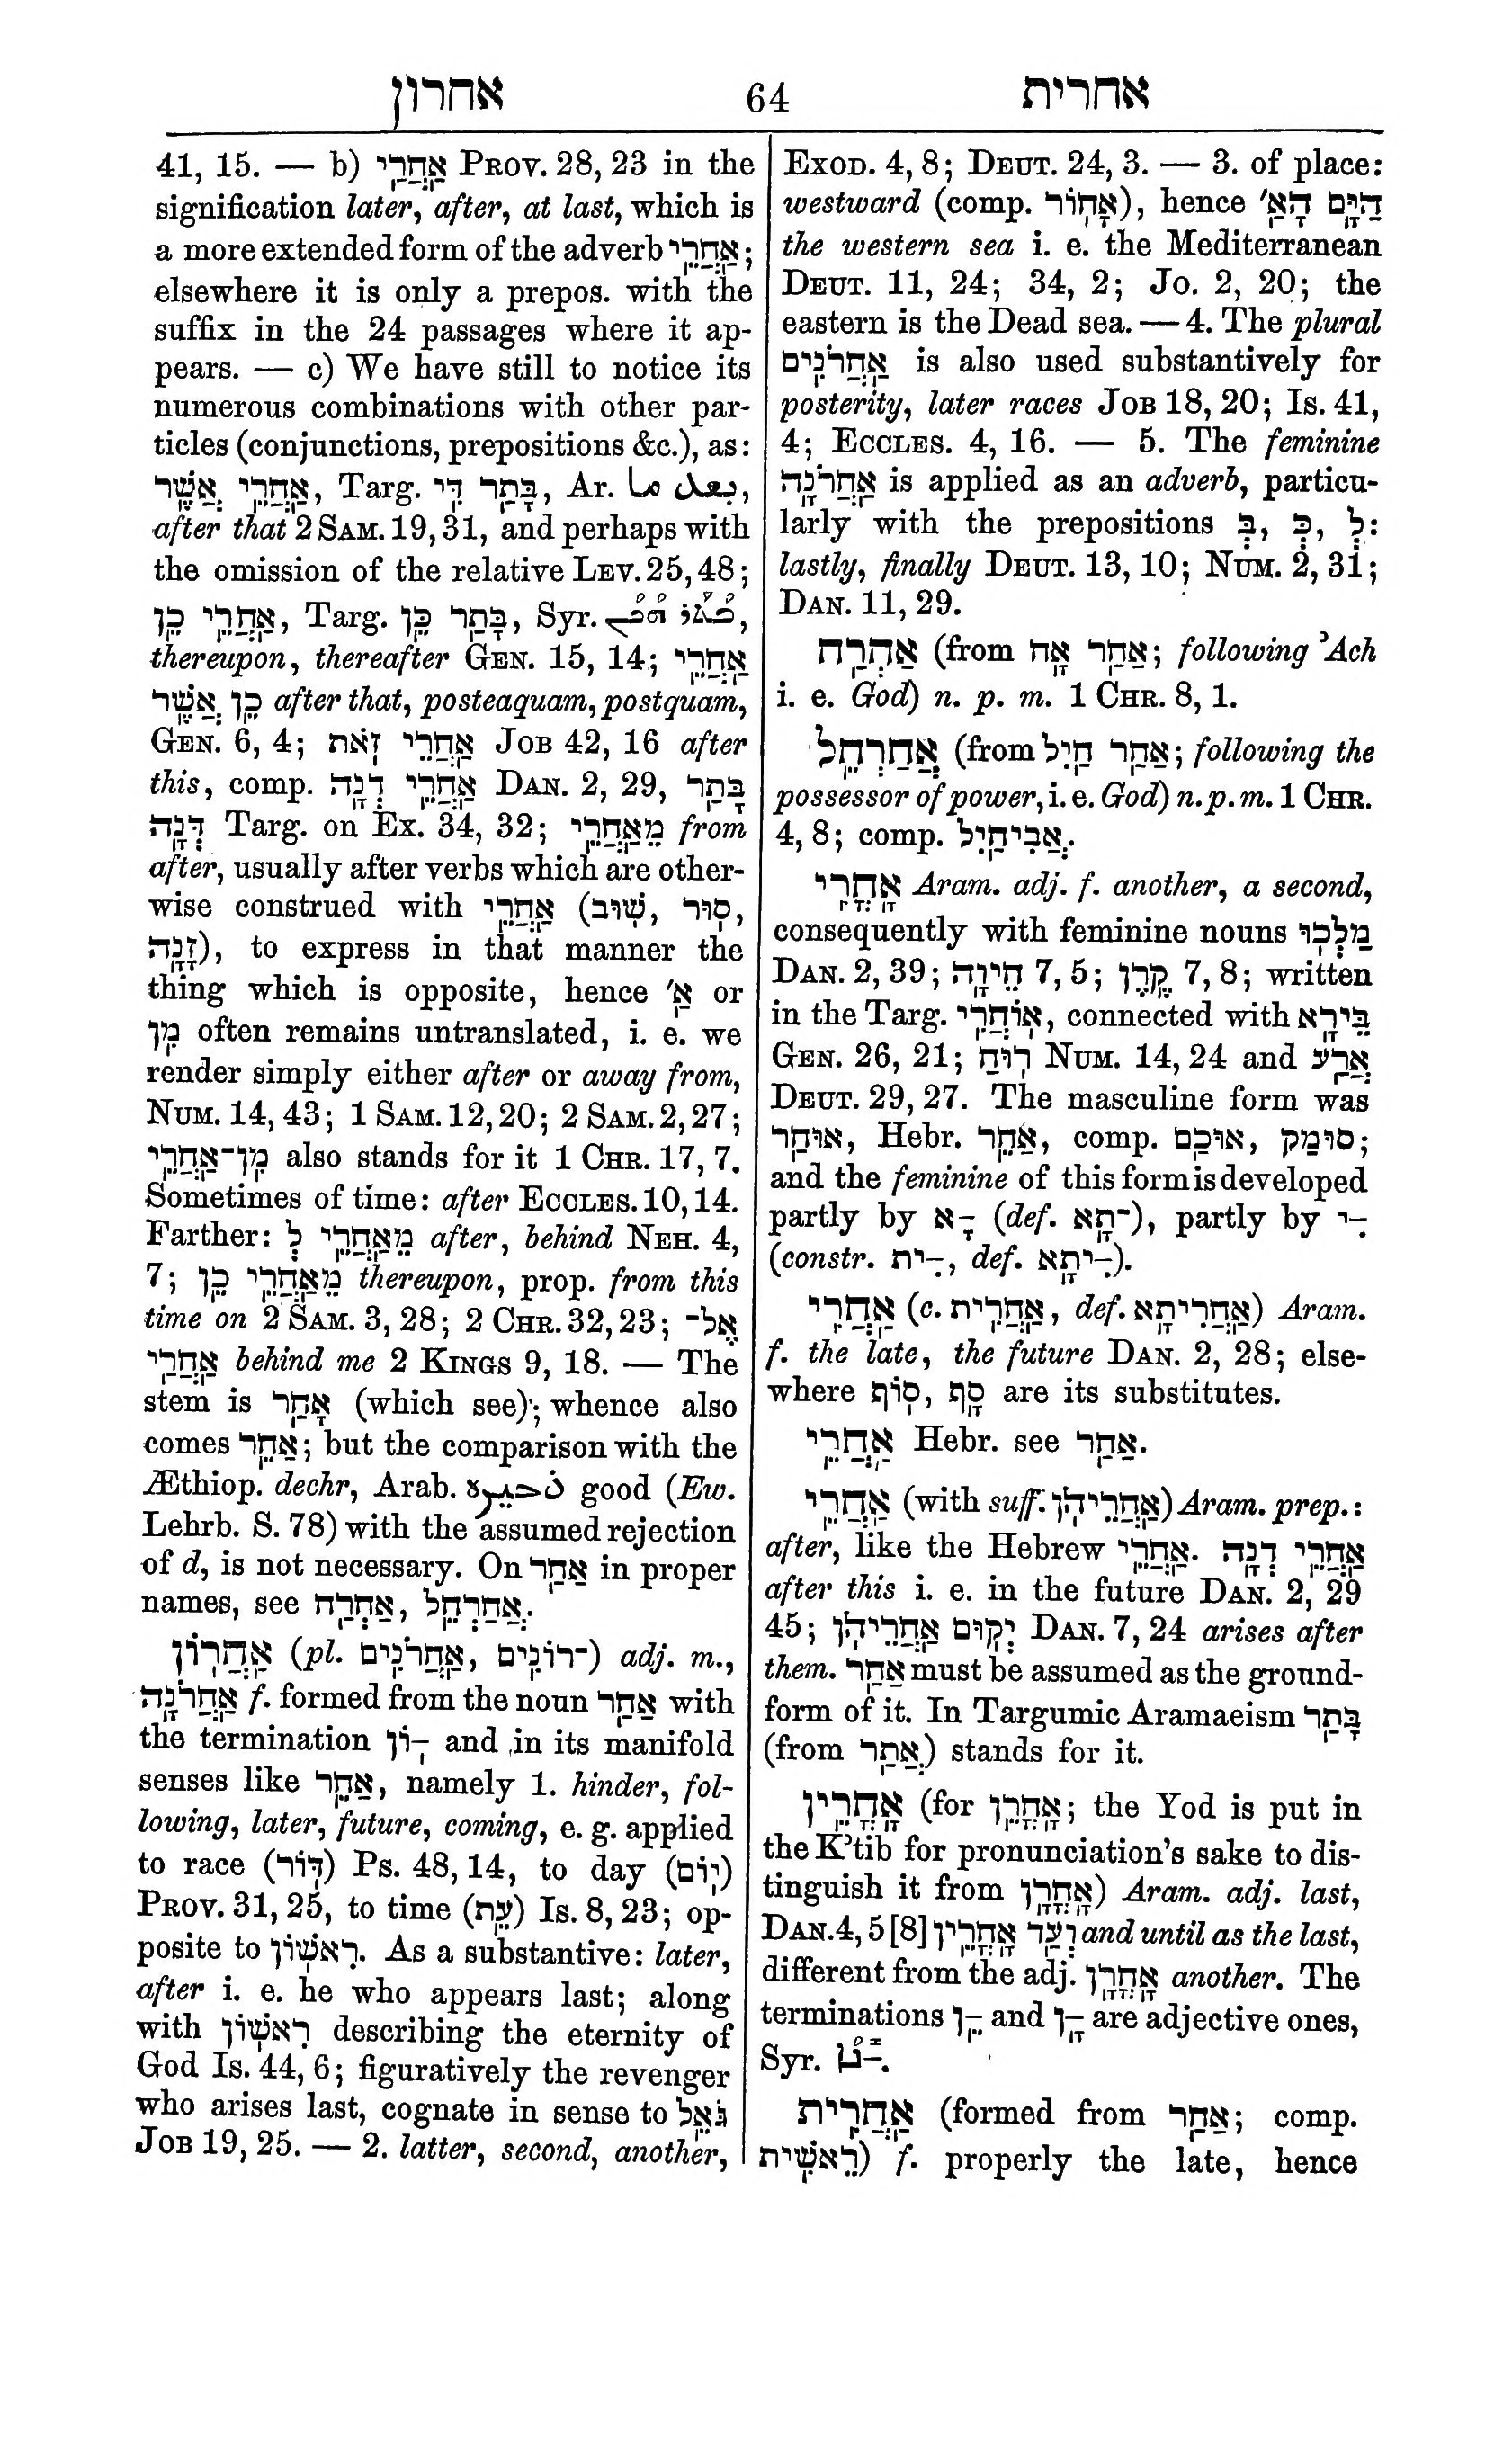 אחרון 64 אחרית
41, 15. — b) אַחֲרַי PROV. 28, 23 in the
signification later, after, at last, which is
a more extended form of the adverb אַחֲרֵי;
elsewhere it is only a prepos. with the
suffix in the 24 passages where it ap-
pears. — c) We have still to notice its
numerous combinations with other par-
ticles (conjunctions, prepositions &c.), as:
אַחֲרֵי אֲשֶׁר, Targ. בָּתַר דִּי, Ar. بعد ما,
after that 2 SAM. 19, 31, and perhaps with
the omission of the relative LEV. 25, 48;
אַחֲרֵי כֵן, Targ. בָּתַר כֵּן, Syr.
thereupon, thereafter GEN. 15, 14; אַחֲרֵי
כֵן אֲשֶׁר after that, posteaquam, postquam,
GEN. 6, 4; אַחֲרֵי זֹאת JOB 42, 16 after
this, comp. אַחֲרֵי דְנָה DAN. 2, 29, בָּתַר
דְּנָה Targ. on Ex. 34, 32; מֵאַחֲרֵי from
after, usually after verbs which are other-
wise construed with אַחֲרֵי (שׁוּב, סוּר,
זָנָה), to express in that manner the
thing which is opposite, hence אַ' or
מִן often remains untranslated, i. e. we
render simply either after or away from,
NUM. 14, 43; 1 SAM. 12, 20; 2 SAM. 2, 27;
מִן־אַחֲרֵי also stands for it 1 CHR. 17, 7.
Sometimes of time: after ECCLES. 10, 14.
Farther: מֵאַחֲרֵי לְ after, behind NEH. 4,
7; מֵאַחֲרֵי כֵן thereupon, prop. from this
time on 2 SAM. 3, 28; 2 CHR. 32, 23; אֶל־
אַחֲרַי behind me 2 KINGS 9, 18. — The
stem is אָחַר (which see); whence also
comes אַחֵר; but the comparison with the
Æthiop. dechr, Arab. good (Ew.
Lehrb. S. 78) with the assumed rejection
of d, is not necessary. On אַחַר in proper
names, see אַחְרַח, אֲחַרְחֵל.
אַחֲרוֹן (pl. אַחֲרֹנִים, ־רוֹנִים) adj. m.,
אַחֲרֹנָה f. formed from the noun אַחַר with
the termination ־וֹן and in its manifold
senses like אַחֵר, namely 1. hinder, fol-
lowing, later, future, coming, e. g. applied
to race (דּוֹר) Ps. 48, 14, to day (יוֹם)
PROV. 31, 25, to time (עֵת) Is. 8, 23; op-
posite to רִאשׁוֹן. As a substantive: later,
after i. e. he who appears last; along
with רִאשׁוֹן describing the eternity of
God Is. 44, 6; figuratively the revenger
who arises last, cognate in sense to גֹּאֵל
JOB 19, 25. — 2. latter, second, another,
EXOD. 4, 8; DEUT. 24, 3. — 3. of place:
westward (comp. אָחוֹר), hence הַיָּם הָאַ'
the western sea i. e. the Mediterranean
DEUT. 11, 24; 34, 2; Jo. 2, 20; the
eastern is the Dead sea. — 4. The plural
אַחֲרֹנִים is also used substantively for
posterity, later races JOB 18, 20; Is. 41,
4; ECCLES. 4, 16. — 5. The feminine
אַחֲרֹנָה is applied as an adverb, particu-
larly with the prepositions בְּ, כְּ, לְ:
lastly, finally DEUT. 13, 10; NUM. 2, 31;
DAN. 11, 29.
אַחְרַח (from אַחַר אָח; following ʾAch
i. e. God) n. p. m. 1 CHR. 8, 1.
אֲחַרְחֵל (from אַחַר חַיִל; following the
possessor of power, i. e. God) n. p. m. 1 CHR.
4, 8; comp. אֲבִיחַיִל.
אָחֳרִי Aram. adj. f. another, a second,
consequently with feminine nouns מַלְכוּ
DAN. 2, 39; חֵיוָה 7, 5; קֶרֶן 7, 8; written
in the Targ. אוֹחֲרִי, connected with בֵּירָא
GEN. 26, 21; רוּחַ NUM. 14, 24 and אֲרַע
DEUT. 29, 27. The masculine form was
אוּחַר, Hebr. אַחֵר, comp. אוּכַם, סוּמַק;
and the feminine of this form is developed
partly by ־ָא (def. ־תָא), partly by ־ִי
(constr. ־ִית, def. ־ִיתָא).
אַחֲרִי (c. אַחֲרִית, def. אַחֲרִיתָא) Aram.
f. the late, the future DAN. 2, 28; else-
where סוֹף, סָף are its substitutes.
אַחֲרֵי Hebr. see אַחַר.
אַחֲרֵי (with suff. אַחֲרֵיהֹן) Aram. prep.:
after, like the Hebrew אַחֲרֵי. אַחֲרֵי דְנָה
after this i. e. in the future DAN. 2, 29
45; יְקוּם אַחֲרֵיהֹן DAN. 7, 24 arises after
them. אַחַר must be assumed as the ground-
form of it. In Targumic Aramaeism בָּתַר
(from אֲתַר) stands for it.
אָחֳרֵין (for אָחֳרֵן; the Yod is put in
the Kʾtib for pronunciation's sake to dis-
tinguish it from אָחֳרָן) Aram. adj. last,
DAN. 4, 5 [8] וְעַד אָחֳרֵין and until as the last,
different from the adj. אָחֳרָן another. The
terminations ־ֵן and ־ָן are adjective ones,
Syr.
אַחֲרִית (formed from אַחַר; comp.
רֵאשִׁית) f. properly the late, hence